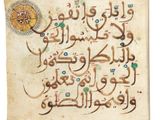 وَإِيَّايَ فَاتَّقُونِ
وَلَا تَلْبِسُوا الْحَقَّ
بِالْبَاطِلِ وَتَكْتُمُوا
الْحَقَّ وَأَنتُمْ تَعْلَمُونَ
وَأَقِيمُوا الصَّلَوٰةَ